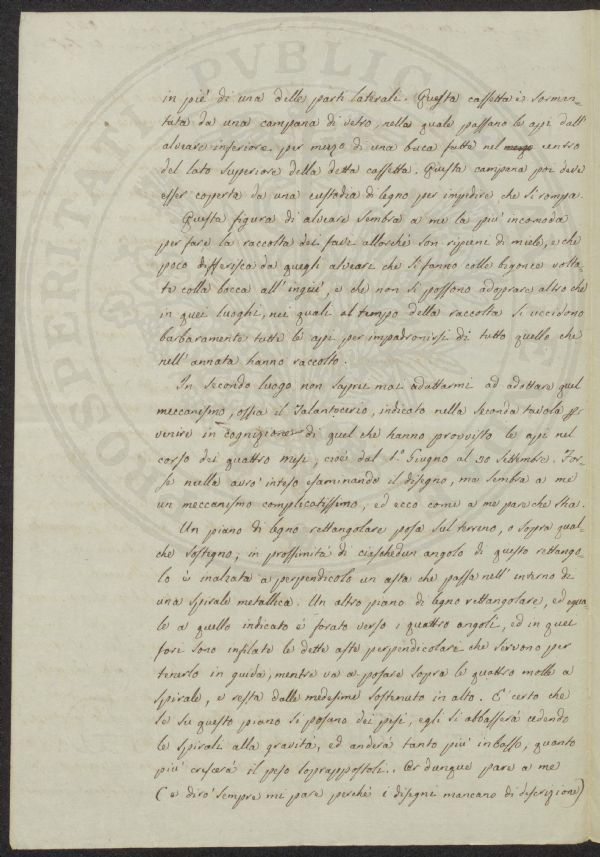 in piè di una delle parti laterali. Questa cassetta è sormon-
tata da una campana di vetro, nella quale passano le api dall'
alveare inferiore per mezzo di una buca fatta nel mezzo centro
del lato superiore della detta cassetta. Questa campana poi deve
esser coperta da una custodia di legno per impedire che si rompa.
Questa figura di alveare sembra a me la più incomoda
per fare la raccolta dei favi allorché son ripieni di miele, e che
poco differisca da quegli alveari che si fanno colle bigonce volta-
te colla bocca all'ingiù, e che non si possono adoprare altro che
in quei luoghi, nei quali al tempo della raccolta si uccidono
barbaramente tutte le api per impadronirsi di tutto quello che
nell'annata hanno raccolto.
In secondo luogo non saprei mai adattarmi ad adottare quel
meccanismo, ossia il Talantocerio, indicato nella seconda tavola per
venire in cognizione di quel che hanno provvisto le api nel
corso dei quattro mesi, cioè dal 1.° Giugno al 30 Settembre. For-
se nulla avrò inteso esaminando il disegno, ma sembra a me
un meccanismo complicatissimo, ed ecco come a me pare che stia.
Un piano di legno rettangolare posa sul terreno, o sopra qual-
che sostegno; in prossimità di ciaschedun angolo di questo rettango-
lo è inalzata a perpendicolo un'asta che passa nell'interno di
una spirale metallica. Un altro piano di legno rettangolare, ed egua-
le a quello indicato è forato verso i quattro angoli, ed in quei
fori sono infilate le dette aste perpendicolare che servono per
tenerlo in guida, mentre va a posare sopra le quattro molle a
spirale, e resta dalle medesime sostenuto in alto. È certo che
se su questo piano si posano dei pesi, egli si abbasserà cedendo
le spirali alla gravità, ed anderà tanto più in basso, quanto
più crescerà il peso soprappostoli. Or dunque pare a me
(e dirò sempre mi pare perché i disegni mancano di descrizione)